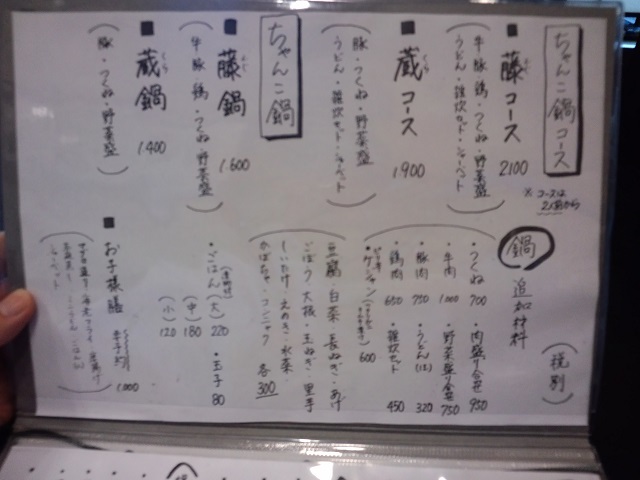 ちゃんこ鍋コース
■藤コース 2100
(牛・豚・鶏・つくね・野菜盛
うどん・雑炊セット・シャーベット)
※コースは
2人前から
■蔵コース 1900
(豚・つくね・野菜盛
うどん・雑炊セット・シャーベット)
ちゃんこ鍋
■藤鍋 1600
(牛・豚・鶏・つくね・野菜盛)
■蔵鍋 1400
(豚・つくね・野菜盛)
鍋 追加材料 (税別)
・つくね 700 ・肉盛り合せ 950
・牛肉 1000 ・野菜盛り合せ 750
・豚肉 750 ・うどん 320
・鶏肉 650 ・雑炊セット 450
600
豆腐・白菜・長ねぎ・あげ
ごぼう・大根・玉ねぎ・里芋
しいたけ・えのき・水菜・
かぼちゃ・コンニャク 各300
・ごはん (大) 220 ・玉子 80
(中) 180
(小) 120
■お子様膳 要予約 1,000
シャーベット